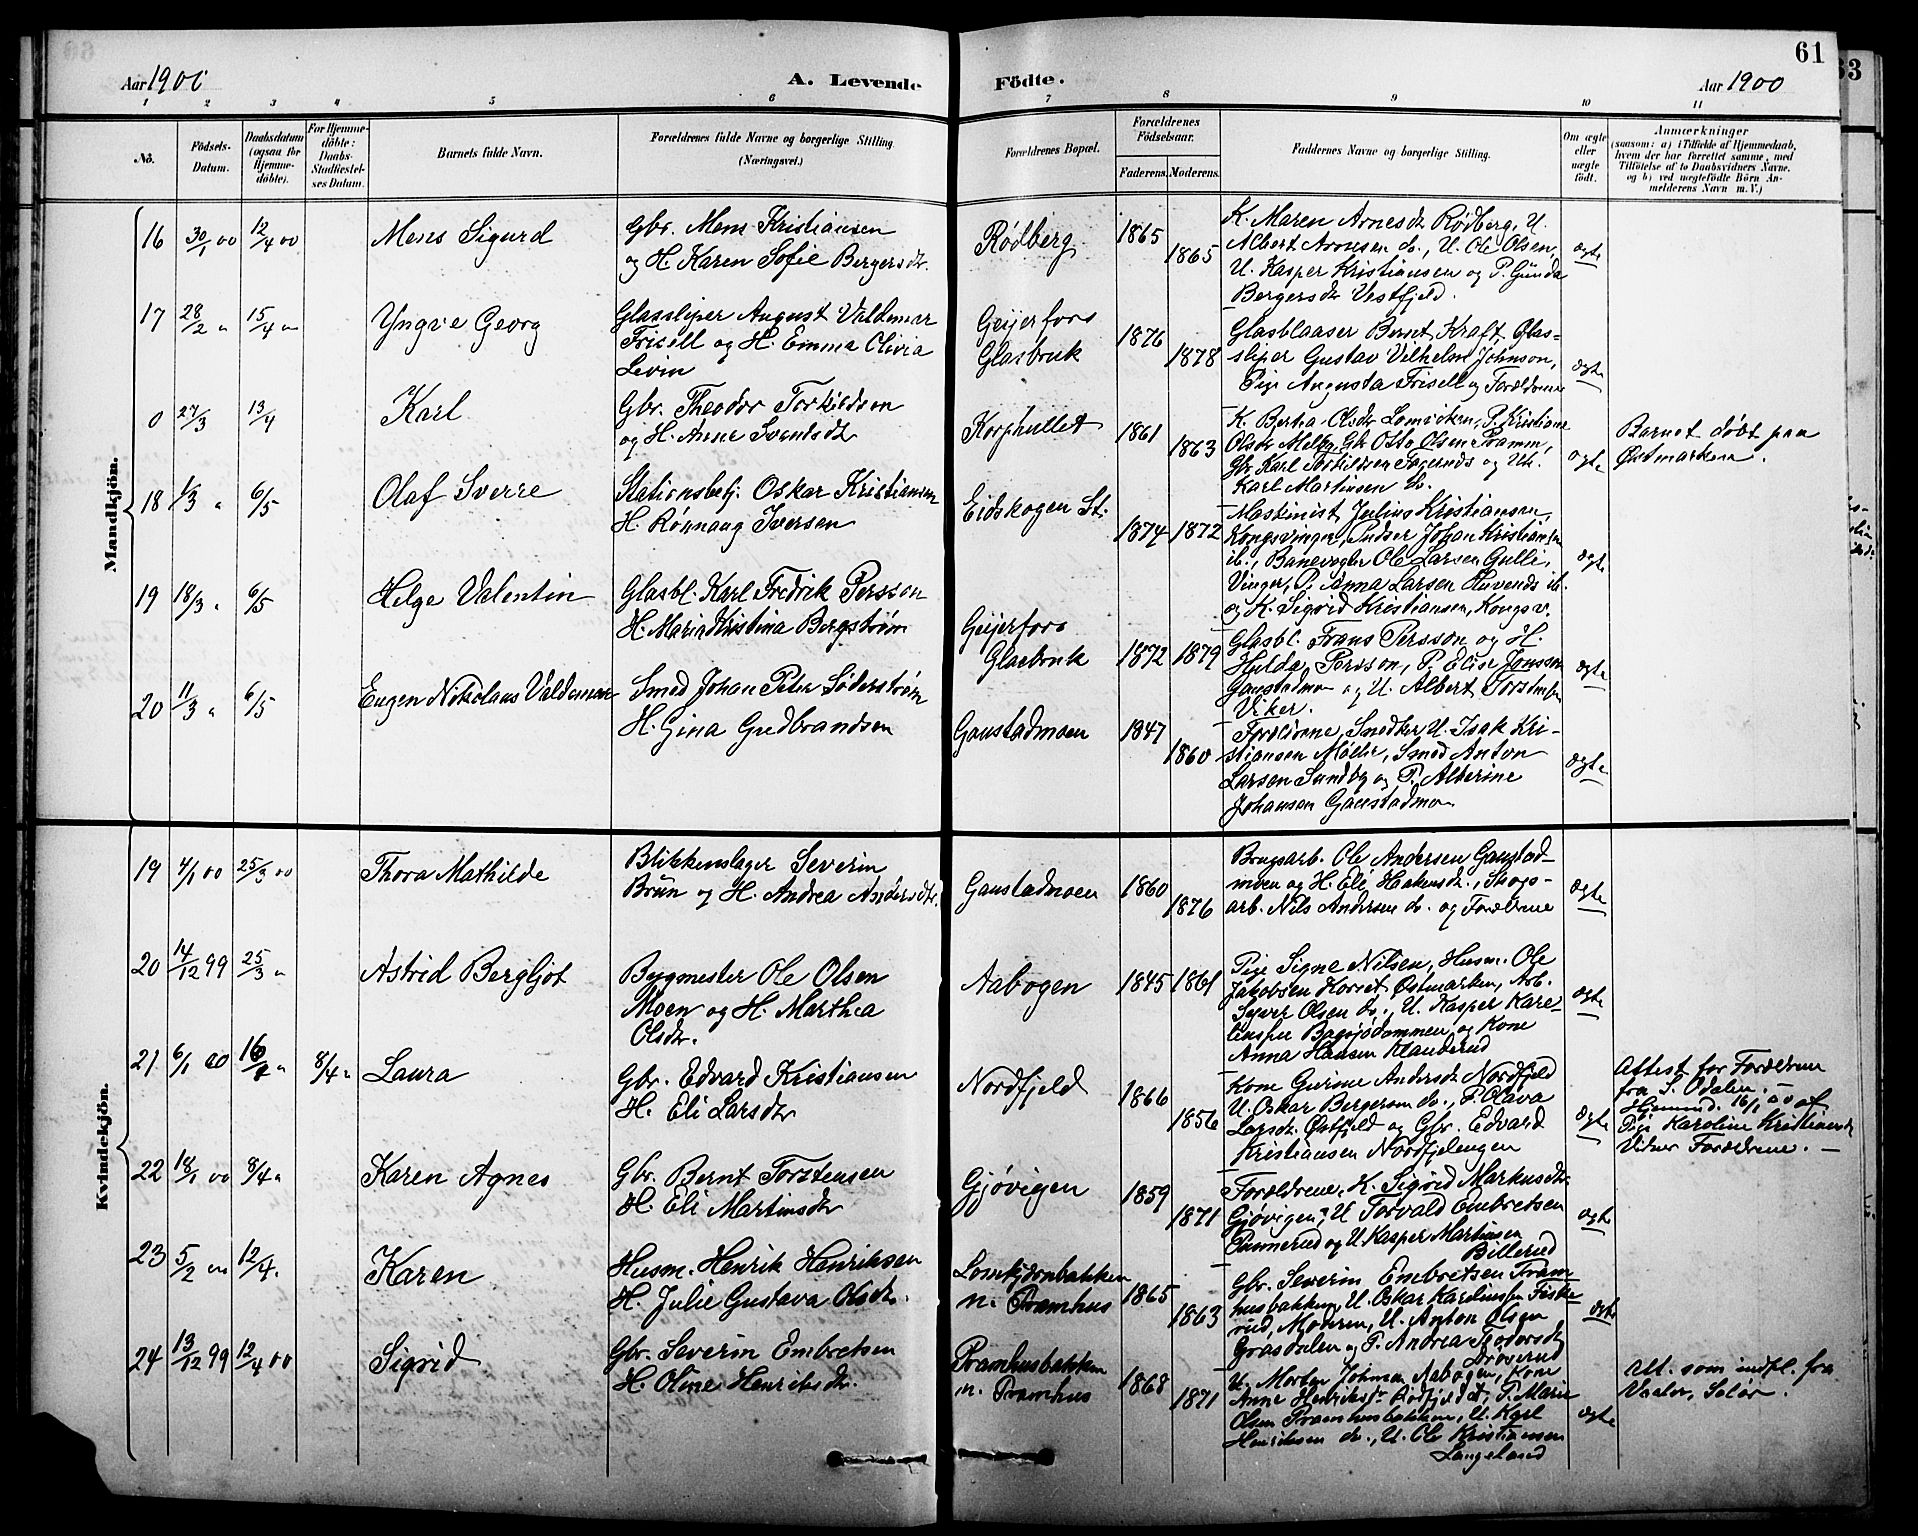 61
Aar 1900
A. Levende Födte.
Aar 1900
1 2 3 4 5 6 7 8 9 10 11
No.
Födsels-Datum.
Daabsdatum (ogsaa for Hjemme-döbte).
For Hjemme-döbte: Daabs-Stadfæstel-ses Datum.
Barnets fulde Navn.
Forældrenes fulde Navne og borgerlige Stilling (Næringsvei.)
Forældrenes Bopæl.
Forældrenes Födselsaar.
Faderens. Moderens.
Faddernes Navne og borgerlige Stilling.
Om ægte eller uægte födt.
Anmærkninger
(saasom: a) i Tilfælde af Hjemmedaab, hvem der har forrettet samme, med Tilföielse af to Daabsvidners Navne. og b) ved uægtefödte Börn An-melderens Navn m. V.)
Mandkjön.
16 30/1 00 12/4 00 Mens Sigurd
Gbr. Mens Kristiansen
og H. Karen Sofie Bergersdtr.
Rødberg 1865 1865
K. Maren Arnesdtr Rødberg, U.
Albert Arnesen do., U. Ole Olsen,
U. Kasper Kristiansen og P. Gunda
Bergersdtr Vestfjeld.
ægte
17 28/2 " 15/4 " Yngve Georg
Glassliper August Valdemar
Frisell og H. Emma Olivia
Levin
Geijerfors
Glasbruk
1876 1878
Glasblaaser Bernt Kraft, Glas-
sliper Gustav Vilhelm Johnson,
Pige Augusta Frisell og Forældrene
ægte
0 27/3 13/4 Karl
Gbr. Theodor Torkildsen
og H. Anne Svendsdtr
Korphullet 1861 1863
K. Bertha Olsdtr Lomviken, P. Kristiane
Olsdtr Melby, Gbr Otto Olsen Pramm,
Gbr Karl Torkildsen Fagernes og Uk.
Karl Martinsen do.
ægte
Barnet døbt paa
Østmarken.
18 1/3 " 6/5 Olaf Sverre
Stationsbetj. Oskar Kristiansen
H. Rönnaug Iversen
Eidskogen St. 1874 1872
Maskinist Julius Kristiansen
Kongsvinger, Pudser Johan Kristiansen
ib., Banevogter Ole Larsen Gulli,
Vinger, P. Anna Larsen Huvenes ib.
og K. Sigrid Kristiansen, Kongsv.
ægte
19 18/3 " 6/5 Helge Valentin
Glasbl. Karl Fredrik Persson
H. Maria Kristina Bergstrøm
Geijerfors
Glasbruk
1872 1879
Glasbl. Frans Persson og H.
Hulda Persson, P. Elise Jonsson
Gaustadmoen og U. Albert Torstensen
Viker.
ægte
20 11/3 " 6/5 Eugen Nikolaus Valdemar
Smed Johan Peter Søderstrøm
H. Gina Gudbrandsen
Gaustadmoen 1847 1860
Forældrene, Snedker U. Isak Kri-
stiansen Møller, Smed Anton
Larsen Sundby og P. Alberine
Johansen Gaustadmoen
ægte
Kvindekjön.
19 4/1 00 25/3 00 Thora Mathilde
Blikkenslager Severin
Brun og H. Andrea Andersdtr.
Gaustadmoen 1860 1876
Brugsarb. Ole Andersen Gaustad-
moen og H. Eli Hakensdtr., Skogs-
arb. Nils Andersen do. og Forældrene
ægte
20 14/12 99 25/3 " Astrid Bergljot
Bygmester Ole Olsen
Moen og H. Marthea
Olsdtr.
Aabogen 1845 1861
Pige Signe Nilsen, Husm. Ole
Jakobsen Korret Østmarken, Arb.
Syver Olsen do., U. Kasper Kare-
liusen Bagsjødammen og Kone
Anna Hansen Klanderud
ægte
21 6/1 00 16/1 " 8/4 " Laura
Gbr. Edvard Kristiansen
H. Eli Larsdtr
Nordfjeld 1866 1856
Kone Gurine Andersdtr Nordfjeld
U. Oskar Bergersen do., P. Olava
Larsdtr. Østfjeld og Gbr. Edvard
Kristiansen Nordfjelengen
ægte
Attest for Forældrene
fra S. Odalen. —
Hjemmed. 16/1 00 af
Pige Karoline Kristiansdtr
Vidner Forældrene. —
22 18/1 00 8/4 " Karen Agnes
Gbr. Bernt Torstensen
H. Eli Martinsdtr
Gjøvigen 1859 1871
Forældrene, K. Sigrid Markusdtr
Gjøvigen, U Torvald Embretsen
Pannerud og U. Kasper Martinsen
Billerud
ægte
23 5/2 00 12/4 " Karen
Husm. Henrik Henriksen
H. Julie Gustava Olsdtr.
Lomkjernbakken
n. Pramhus
1865 1863
Gbr. Severin Embretsen Pram-
husbakken, U. Oskar Karelinsen Fiske-
rud, Moren, U. Anton Olsen
Grasdalen og P. Andrea Teodorsdtr
Drøverud
ægte
24 13/12 99 12/4 00 Sigrid
Gbr. Severin Embretsen
H. Oline Henriksdtr.
Pramhusbakken
n. Pramhus
1868 1871
U. Morten Johnsen Aabogen, Kone
Anne Henriksdtr Rødfjeldet, P. Marie
Olsen Pramhusbakken, U. Karl
Henriksen do., U. Ole Kristiansen
Langeland
ægte
Att. som indfl. fra
Vaaler, Solør.